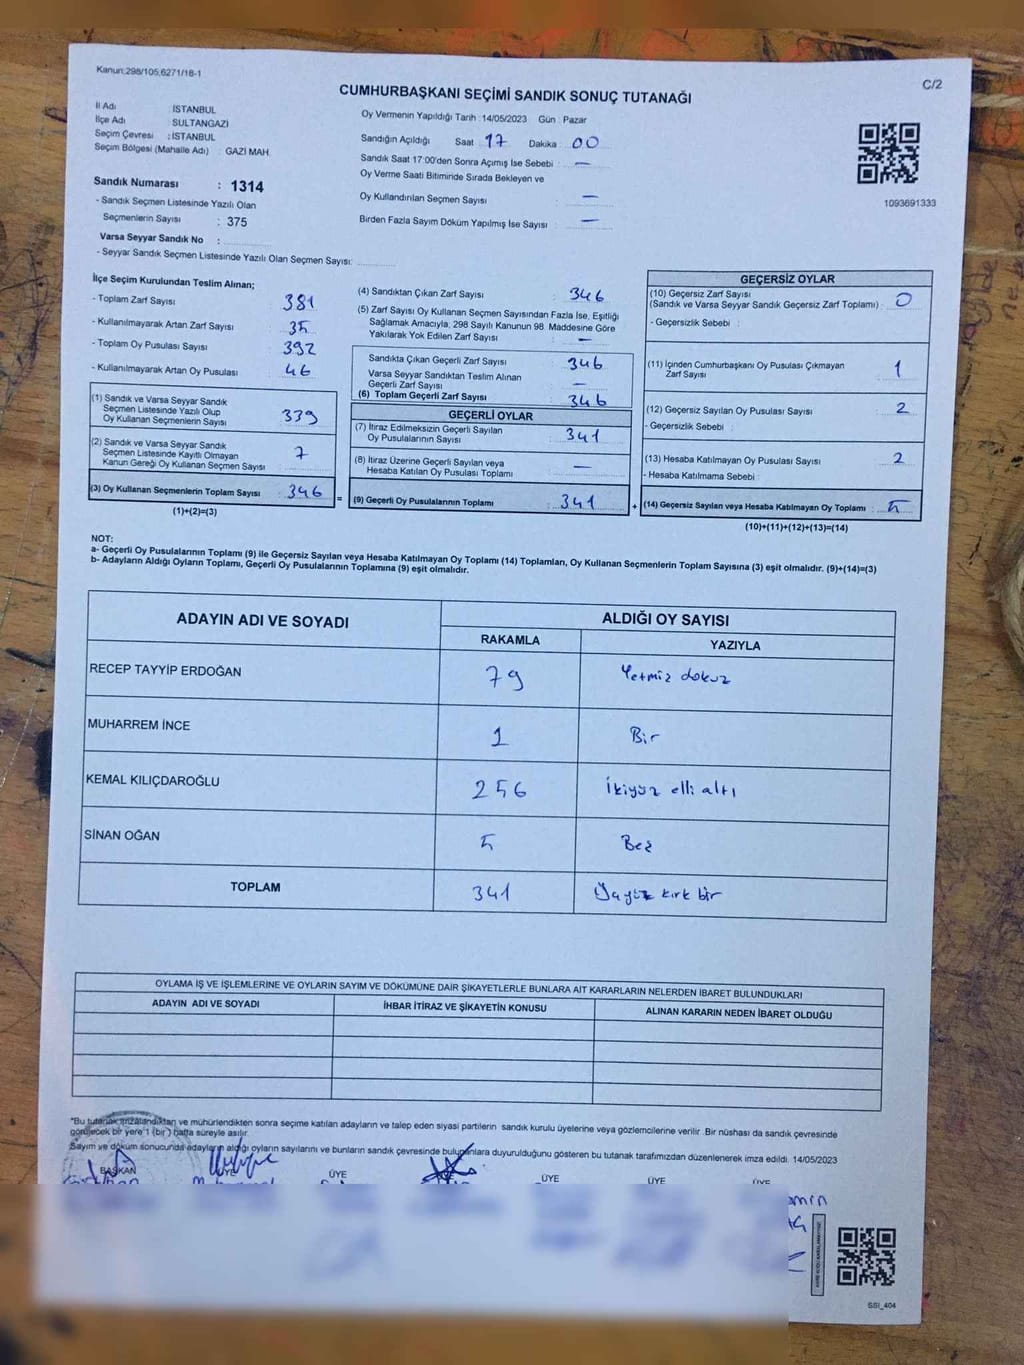 Kanun:298/105,6271/18-1
C/2
CUMHURBAŞKANI SEÇİMİ SANDIK SONUÇ TUTANAĞI
İl Adı İSTANBUL
İlçe Adı SULTANGAZİ
Seçim Çevresi : İSTANBUL
Seçim Bölgesi (Mahalle Adı) : GAZİ MAH.
Sandık Numarası : 1314
- Sandık Seçmen Listesinde Yazılı Olan
Seçmenlerin Sayısı : 375
Varsa Seyyar Sandık No :
- Seyyar Sandık Seçmen Listesinde Yazılı Olan Seçmen Sayısı:
Oy Vermenin Yapıldığı Tarih : 14/05/2023 Gün : Pazar
Sandığın Açıldığı Saat 17 Dakika 00
Sandık Saat 17:00'den Sonra Açımış İse Sebebi : —
Oy Verme Saati Bitiminde Sırada Bekleyen ve
Oy Kullandırılan Seçmen Sayısı : —
Birden Fazla Sayım Döküm Yapılmış İse Sayısı : —
1093691333
İlçe Seçim Kurulundan Teslim Alınan;
- Toplam Zarf Sayısı : 381
- Kullanılmayarak Artan Zarf Sayısı : 35
- Toplam Oy Pusulası Sayısı : 392
- Kullanılmayarak Artan Oy Pusulası : 46
(1) Sandık ve Varsa Seyyar Sandık
Seçmen Listesinde Yazılı Olup
Oy Kullanan Seçmenlerin Sayısı : 339
(2) Sandık ve Varsa Seyyar Sandık
Seçmen Listesinde Kayıtlı Olmayan
Kanun Gereği Oy Kullanan Seçmen Sayısı : 7
(3) Oy Kullanan Seçmenlerin Toplam Sayısı : 346
(1)+(2)=(3)
=
(4) Sandıktan Çıkan Zarf Sayısı : 346
(5) Zarf Sayısı Oy Kullanan Seçmen Sayısından Fazla İse, Eşitliği
Sağlamak Amacıyla, 298 Sayılı Kanunun 98. Maddesine Göre
Yakılarak Yok Edilen Zarf Sayısı : —
Sandıkta Çıkan Geçerli Zarf Sayısı : 346
Varsa Seyyar Sandıktan Teslim Alınan
Geçerli Zarf Sayısı : —
(6) Toplam Geçerli Zarf Sayısı : 346
GEÇERLİ OYLAR
(7) İtiraz Edilmeksizin Geçerli Sayılan
Oy Pusulalarının Sayısı : 341
(8) İtiraz Üzerine Geçerli Sayılan veya
Hesaba Katılan Oy Pusulası Toplamı : —
(9) Geçerli Oy Pusulalarının Toplamı : 341
+
GEÇERSİZ OYLAR
(10) Geçersiz Zarf Sayısı
(Sandık ve Varsa Seyyar Sandık Geçersiz Zarf Toplamı) : 0
- Geçersizlik Sebebi :
(11) İçinden Cumhurbaşkanı Oy Pusulası Çıkmayan
Zarf Sayısı : 1
(12) Geçersiz Sayılan Oy Pusulası Sayısı : 2
- Geçersizlik Sebebi :
(13) Hesaba Katılmayan Oy Pusulası Sayısı : 2
- Hesaba Katılmama Sebebi :
(14) Geçersiz Sayılan veya Hesaba Katılmayan Oy Toplamı : 5
(10)+(11)+(12)+(13)=(14)
NOT:
a- Geçerli Oy Pusulalarının Toplamı (9) ile Geçersiz Sayılan veya Hesaba Katılmayan Oy Toplamı (14) Toplamları, Oy Kullanan Seçmenlerin Toplam Sayısına (3) eşit olmalıdır. (9)+(14)=(3)
b- Adayların Aldığı Oyların Toplamı, Geçerli Oy Pusulalarının Toplamına (9) eşit olmalıdır.
ADAYIN ADI VE SOYADI
ALDIĞI OY SAYISI
RAKAMLA YAZIYLA
RECEP TAYYİP ERDOĞAN 79 Yetmiş dokuz
MUHARREM İNCE 1 Bir
KEMAL KILIÇDAROĞLU 256 İkiyüz elli altı
SİNAN OĞAN 5 Beş
TOPLAM 341 Üçyüz kırk bir
OYLAMA İŞ VE İŞLEMLERİNE VE OYLARIN SAYIM VE DÖKÜMÜNE DAİR ŞİKAYETLERLE BUNLARA AİT KARARLARIN NELERDEN İBARET BULUNDUKLARI
ADAYIN ADI VE SOYADI İHBAR İTİRAZ VE ŞİKAYETİN KONUSU ALINAN KARARIN NEDEN İBARET OLDUĞU
*Bu tutanak imzalandıktan ve mühürlendikten sonra seçime katılan adayların ve talep eden siyasi partilerin sandık kurulu üyelerine veya gözlemcilerine verilir. Bir nüshası da sandık çevresinde
görülecek bir yere 1 (bir) hafta süreyle asılır.
Sayım ve döküm sonucunda adayların aldığı oyların sayılarını ve bunların sandık çevresinde bulunanlara duyurulduğunu gösteren bu tutanak tarafımızdan düzenlenerek imza edildi. 14/05/2023
BAŞKAN ÜYE ÜYE ÜYE ÜYE ÜYE ÜYE
SSI_404